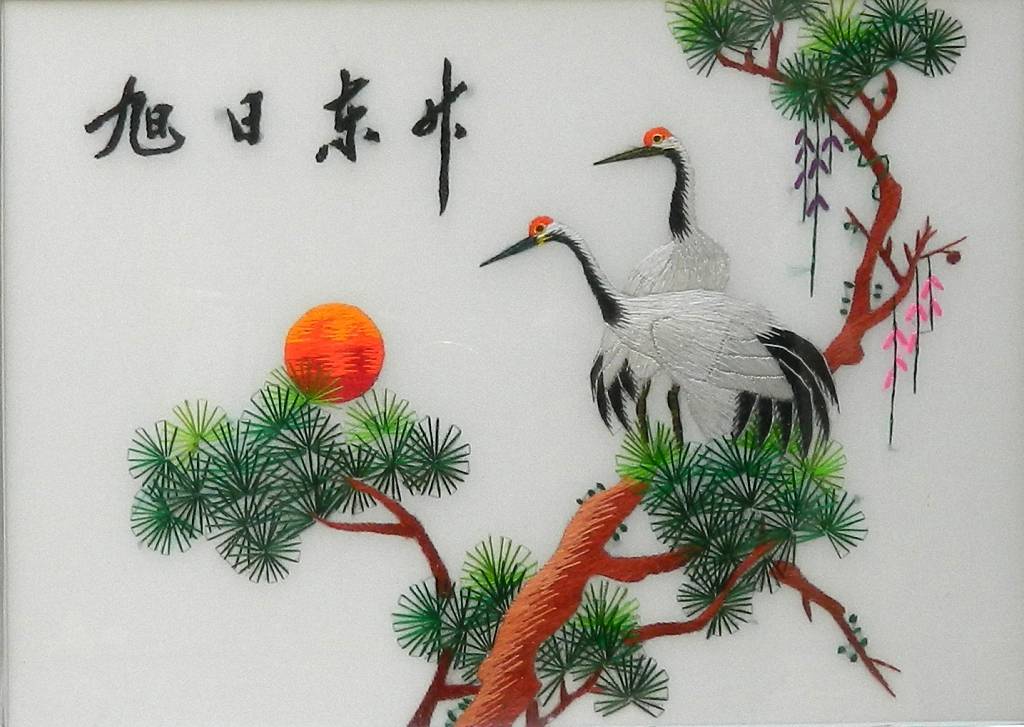 旭日东升